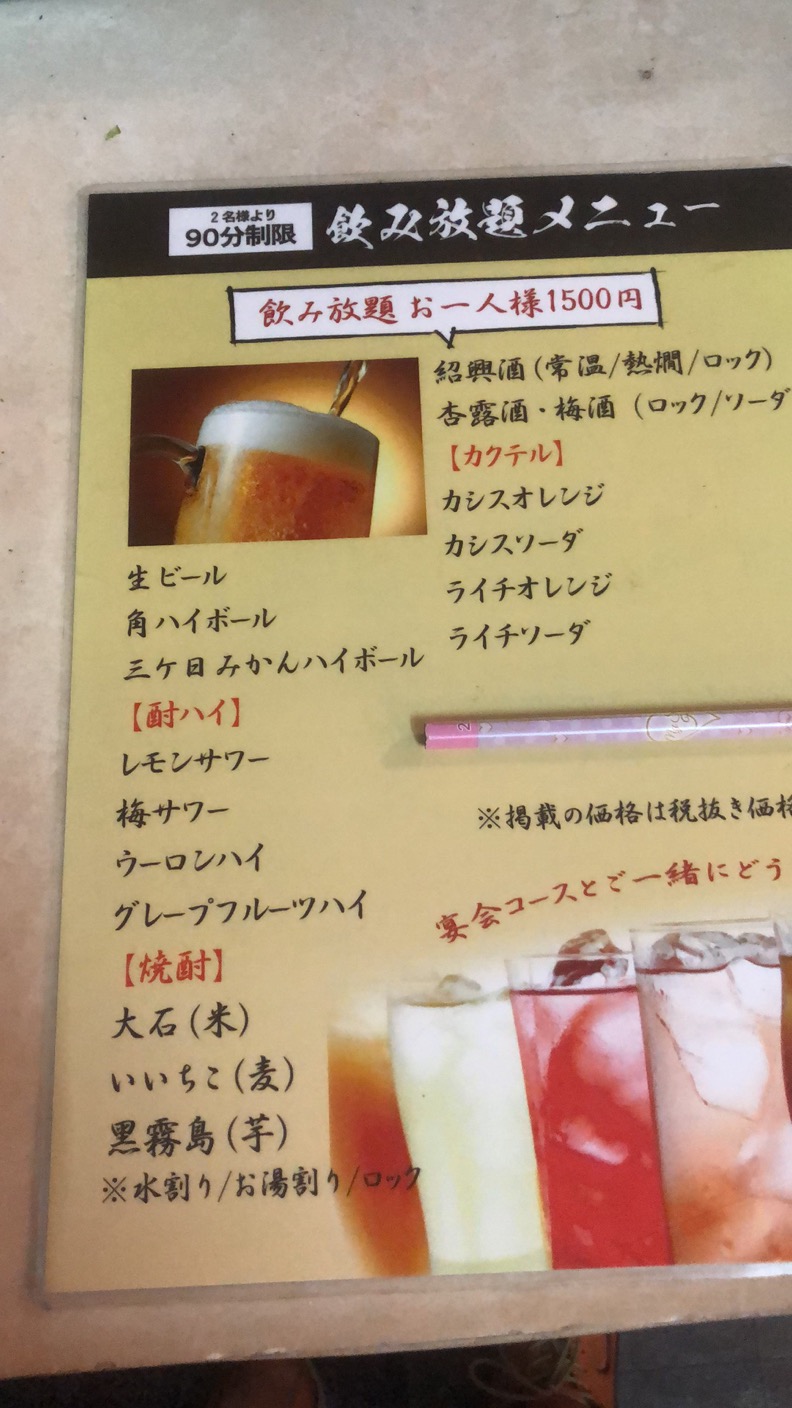 2名様より
90分制限
飲み放題メニュー
飲み放題 お一人様1500円
生ビール
角ハイボール
三ケ日みかんハイボール
【酎ハイ】
レモンサワー
梅サワー
ウーロンハイ
グレープフルーツハイ
【焼酎】
大石(米)
いいちこ(麦)
黒霧島(芋)
※水割り/お湯割り/ロック
紹興酒(常温/熱燗/ロック)
杏露酒・梅酒(ロック/ソーダ
【カクテル】
カシスオレンジ
カシスソーダ
ライチオレンジ
ライチソーダ
2
※掲載の価格は税抜き価格
宴会コースとご一緒にどう